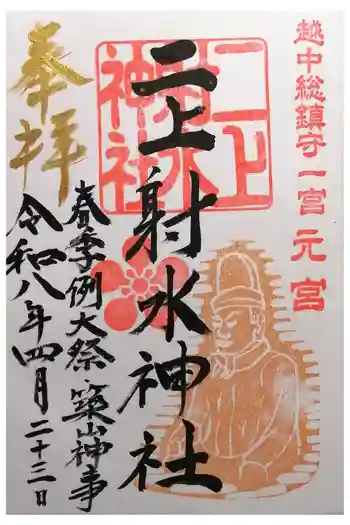 越中総鎮守一宮元宮
二上射水神社
二上射水神社
奉拝
春季例大祭 築山神事
令和八年四月二十三日